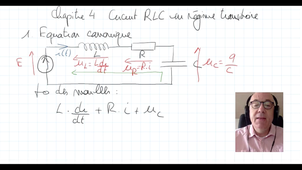 Chapitre 4 Circuit RLC en régime transitoire
1 Equation canonique
i(t) L R
E u_L = L di/dt u_R = R·i u_C = q/C
C
des mailles :
L · di/dt + R · i + u_C